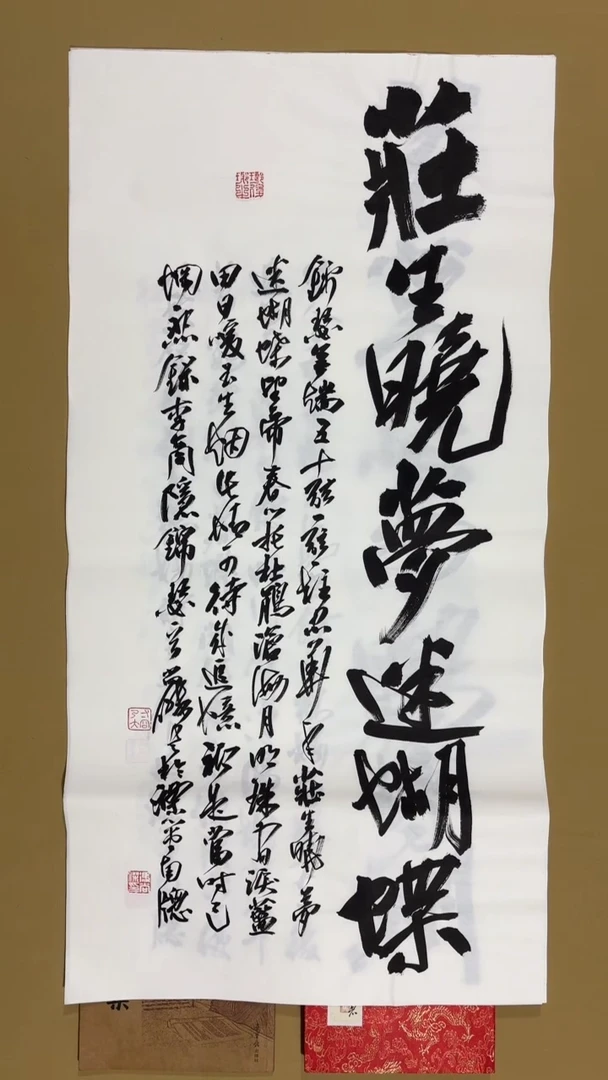 莊生曉夢迷蝴蝶
錦瑟無端五十弦一弦一柱思華年莊生曉夢
迷蝴蝶望帝春心托杜鵑滄海月明珠有淚藍
田日暖玉生烟此情可待成追憶祗是當時已
惘然錄李商隱錦瑟